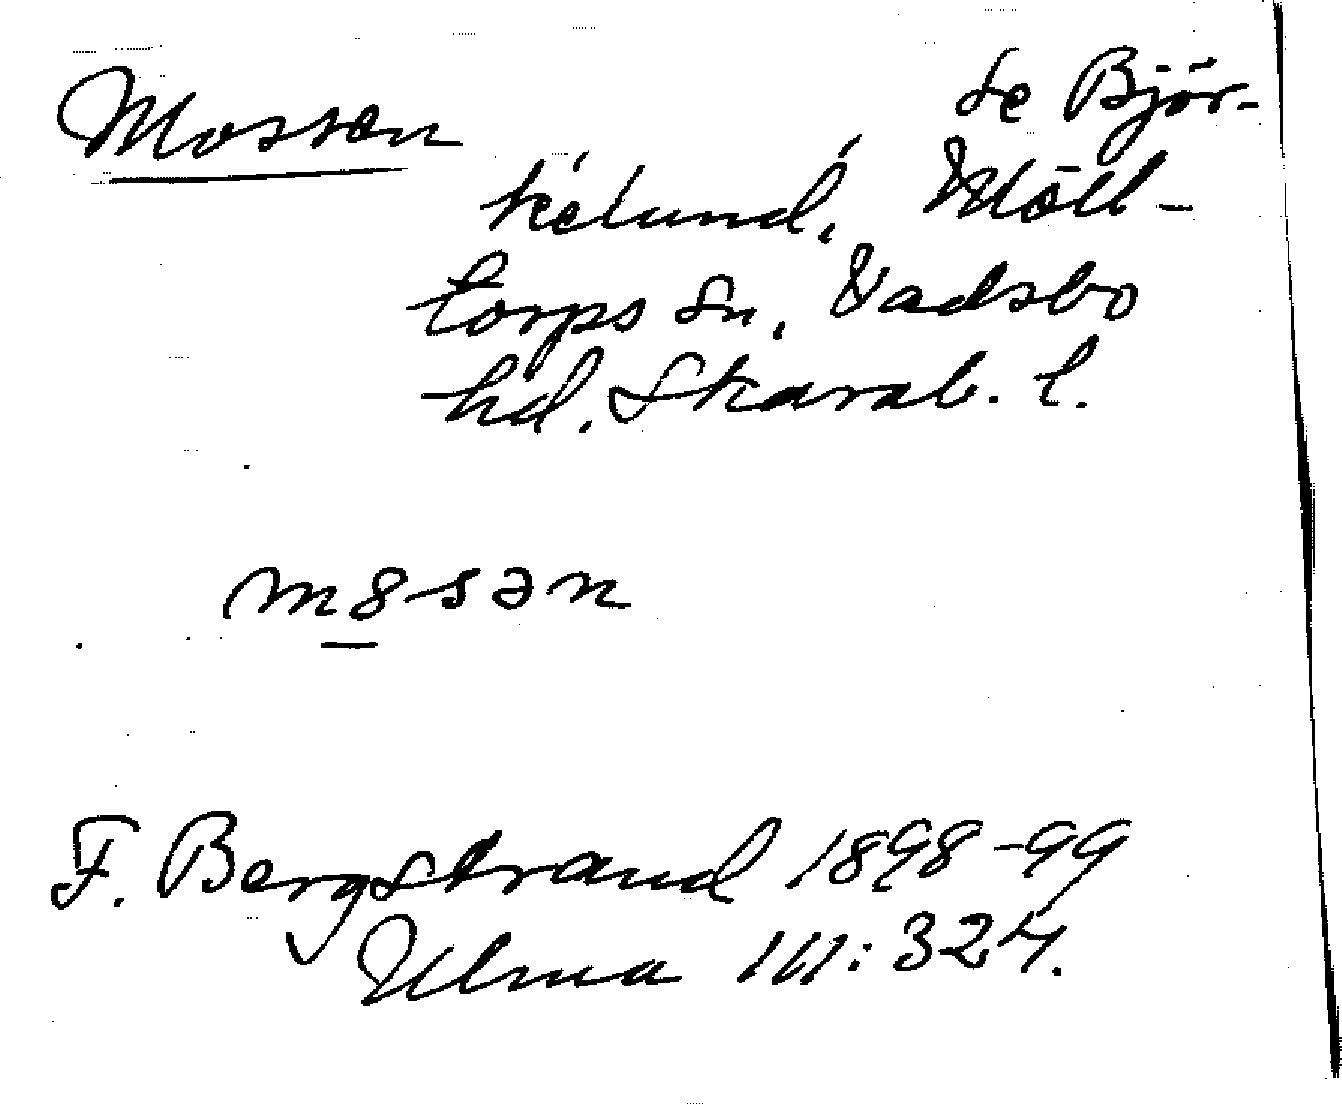 Mossen
se Björ-
kelund, Möll-
torps sn, Vadsbo
hd. Skarab. l.
m8sən
F. Bergstrand 1898-99
Ulma 111:324.